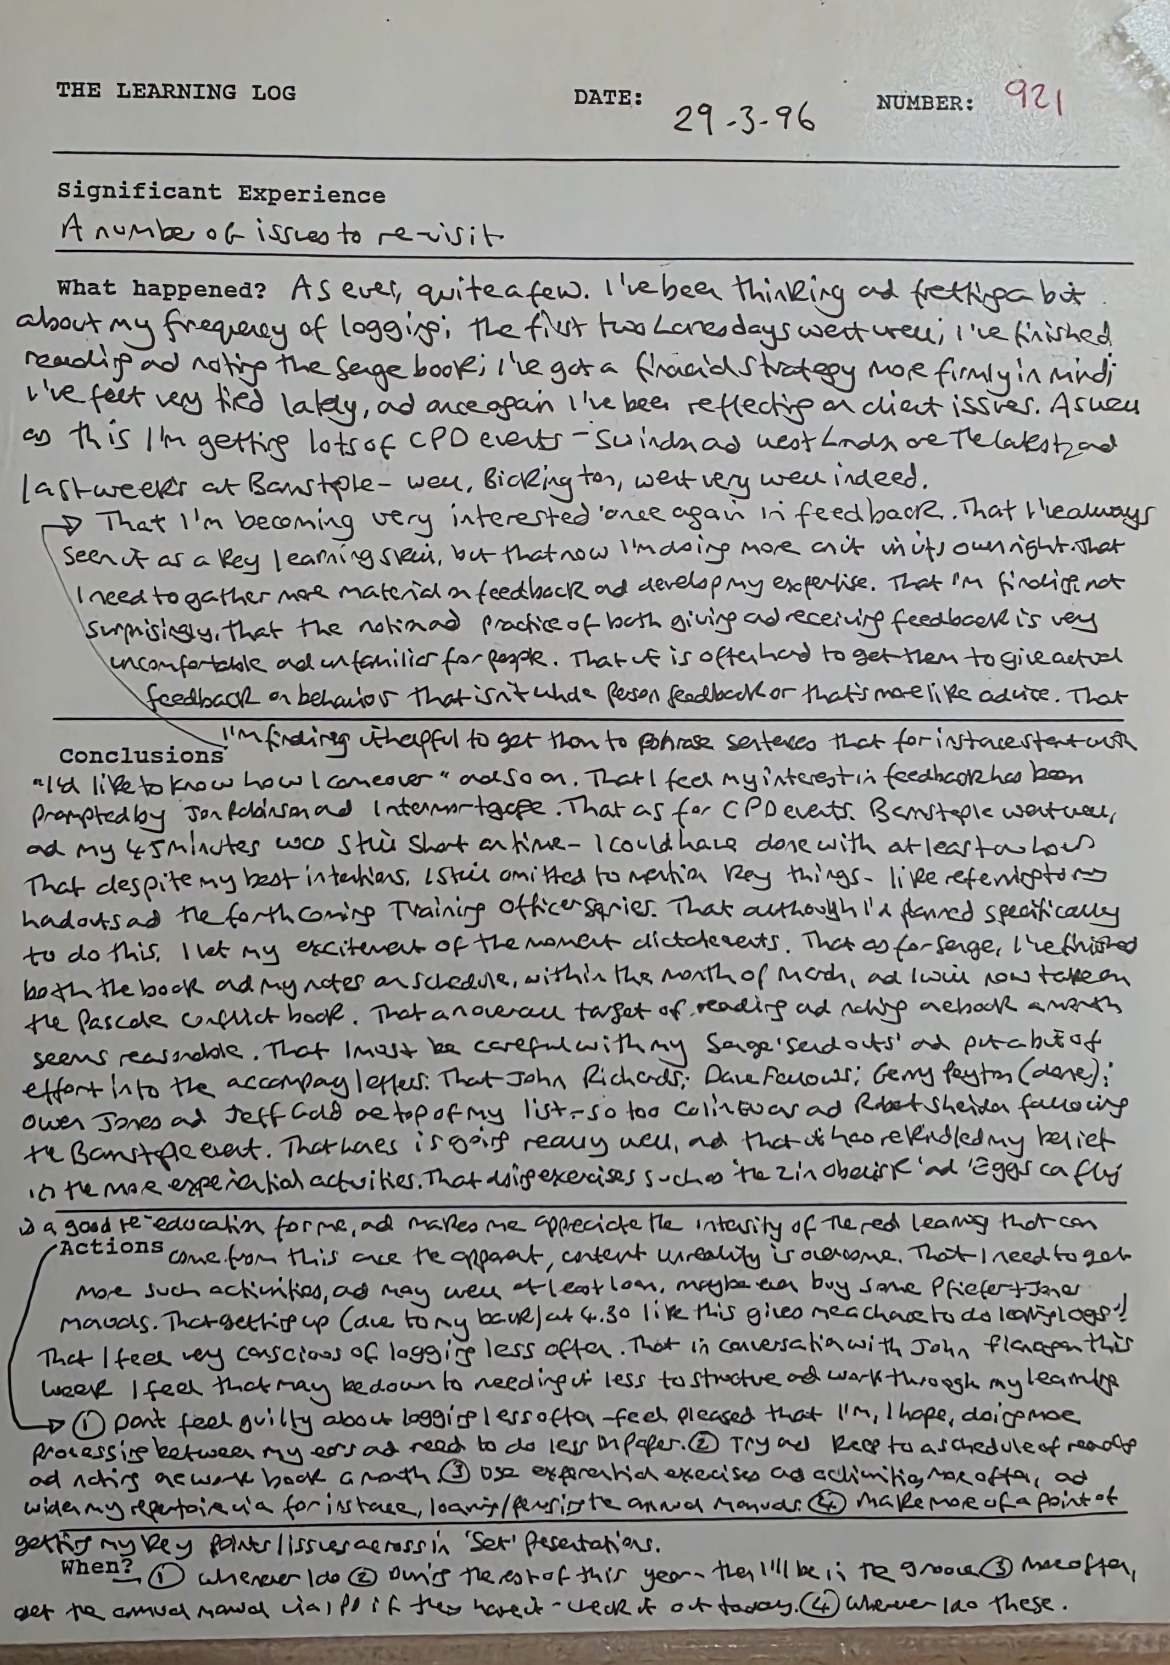 THE LEARNING LOG DATE: 29-3-96 NUMBER: 921
Significant Experience
A number of issues to re-visit
What happened? As ever, quite a few. I've been thinking and fretting a bit
about my frequency of logging; the first two days went well; I've finished
reading and noting the Senge book; I've got a financial strategy more firmly in mind;
I've felt very tired lately, and once again I've been reflecting on client issues. As well
as this I'm getting lots of CPD events - Swindon and West London are the latest, and
last week's at Barnstaple - well, Bickington, went very well indeed.
That I'm becoming very interested once again in feedback. That I've always
seen it as a key learning skill, but that now I'm doing more on it in its own right. That
I need to gather more material on feedback and develop my expertise. That I'm finding, not
surprisingly, that the notion and practice of both giving and receiving feedback is very
uncomfortable and unfamiliar for people. That it is often hard to get them to give actual
feedback on behaviour that isn't whole person feedback or that's more like advice. That
I'm finding it helpful to get them to phrase sentences that for instance start with
Conclusions
"I'd like to know how I come over" and so on. That I feel my interest in feedback has been
prompted by Jon Robinson and Intermortgage. That as for CPD events. Barnstaple went well,
and my 45 minutes was still short on time - I could have done with at least an hour
That despite my best intentions, I still omitted to mention key things - like referring to my
handouts and the forthcoming Training Officer series. That although I'd planned specifically
to do this, I let my excitement of the moment dictate events. That as for Senge, I've finished
both the book and my notes on schedule, within the month of March, and I will now take on
the Pascale conflict book. That an overall target of reading and noting one book a month
seems reasonable. That I must be careful with my Senge 'send outs' and put a bit of
effort into the accompany letters. That John Richards; Dave Fellows; Gerry Peyton (done);
Owen Jones and Jeff Gold are top of my list - so too Colin Evans and Robert following
the Barnstaple event. That is going really well, and that it has rekindled my belief
in the more experiential activities. That doing exercises such as 'the Zin obelisk' and 'Eggs can fly'
is a good re-education for me, and makes me appreciate the intensity of the real learning that can
Actions come from this once the apparent, content unreality is overcome. That I need to get
more such activities, and may well at least loan, maybe even buy some Pfiefer + Jones
manuals. That getting up (due to my back) at 4.30 like this gives me a chance to do learning logs!
That I feel very conscious of logging less often. That in conversation with John Flanagan this
week I feel that may be down to needing it less to structure and work through my learning
① Don't feel guilty about logging less often - feel pleased that I'm, I hope, doing more
processing between my ears and need to do less on paper. ② Try and keep to a schedule of reading
and noting one work book a month. ③ Use experiential exercises and activities more often, and
widen my repertoire via for instance, loaning/perusing the annual manuals. ④ Make more of a point of
getting my key points/issues across in 'Set' presentations.
When? ① Whenever I do ② During the rest of this year - then I'll be in the groove ③ More often,
get the annual manual via IPD if they have it - check it out today. ④ Whenever I do these.